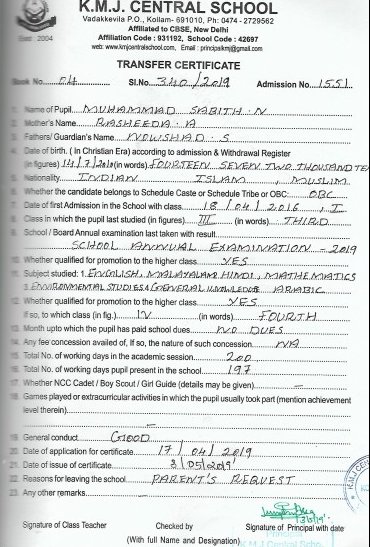 K.M.J. CENTRAL SCHOOL
Vadakkevila P.O., Kollam- 691010, Ph: 0474 - 2729562
Affiliated to CBSE, New Delhi
Affiliation Code : 931192, School Code : 42697
web: www.kmjcentralschool.com, Email : principalkmj@gmail.com
Estd 2004
TRANSFER CERTIFICATE
Book No. 04 Sl.No. 340/2019 Admission No. 1551
1. Name of Pupil MUHAMMAD SABITH . N
2. Mother's Name RASHEEDA . A
3. Fathers/ Guardian's Name NOWSHAD . S
4. Date of birth. ( In Christian Era) according to admission & Withdrawal Register
(in figures) 14/7/2010 (in words) FOURTEEN SEVEN TWO THOUSAND TEN
5. Nationality INDIAN ISLAM , MUSLIM
6. Whether the candidate belongs to Schedule Caste or Schedule Tribe or OBC: OBC
7. Date of first Admission in the School with class 18/04/2016 , I
8. Class in which the pupil last studied (in figures) III (in words) THIRD
9. School / Board Annual examination last taken with result
SCHOOL ANNUAL EXAMINATION - 2019
10. Whether qualified for promotion to the higher class YES
11. Subject studied: 1. ENGLISH, MALAYALAM HINDI , MATHEMATICS
3. ENVIRONMENTAL STUDIES & GENERAL KNOWLEDGE ARABIC
12. Whether qualified for promotion to the higher class YES
If so, to which class (in fig.) IV (in words) FOURTH
13. Month upto which the pupil has paid school dues NO DUES
14. Any fee concession availed of, If so, the nature of such concession NA
15. Total No. of working days in the academic session 200
16. Total No. of working days pupil present in the school 197
17. Whether NCC Cadet / Boy Scout / Girl Guide (details may be given) —
18. Games played or extracurricular activities in which the pupil usually took part (mention achievement
level therein) —
19. General conduct GOOD
20. Date of application for certificate 17/04/2019
21. Date of issue of certificate 3/05/2019
22. Reasons for leaving the school PARENT'S REQUEST
23. Any other remarks —
Signature of Class Teacher Checked by Signature of Principal with date
(With full Name and Designation)